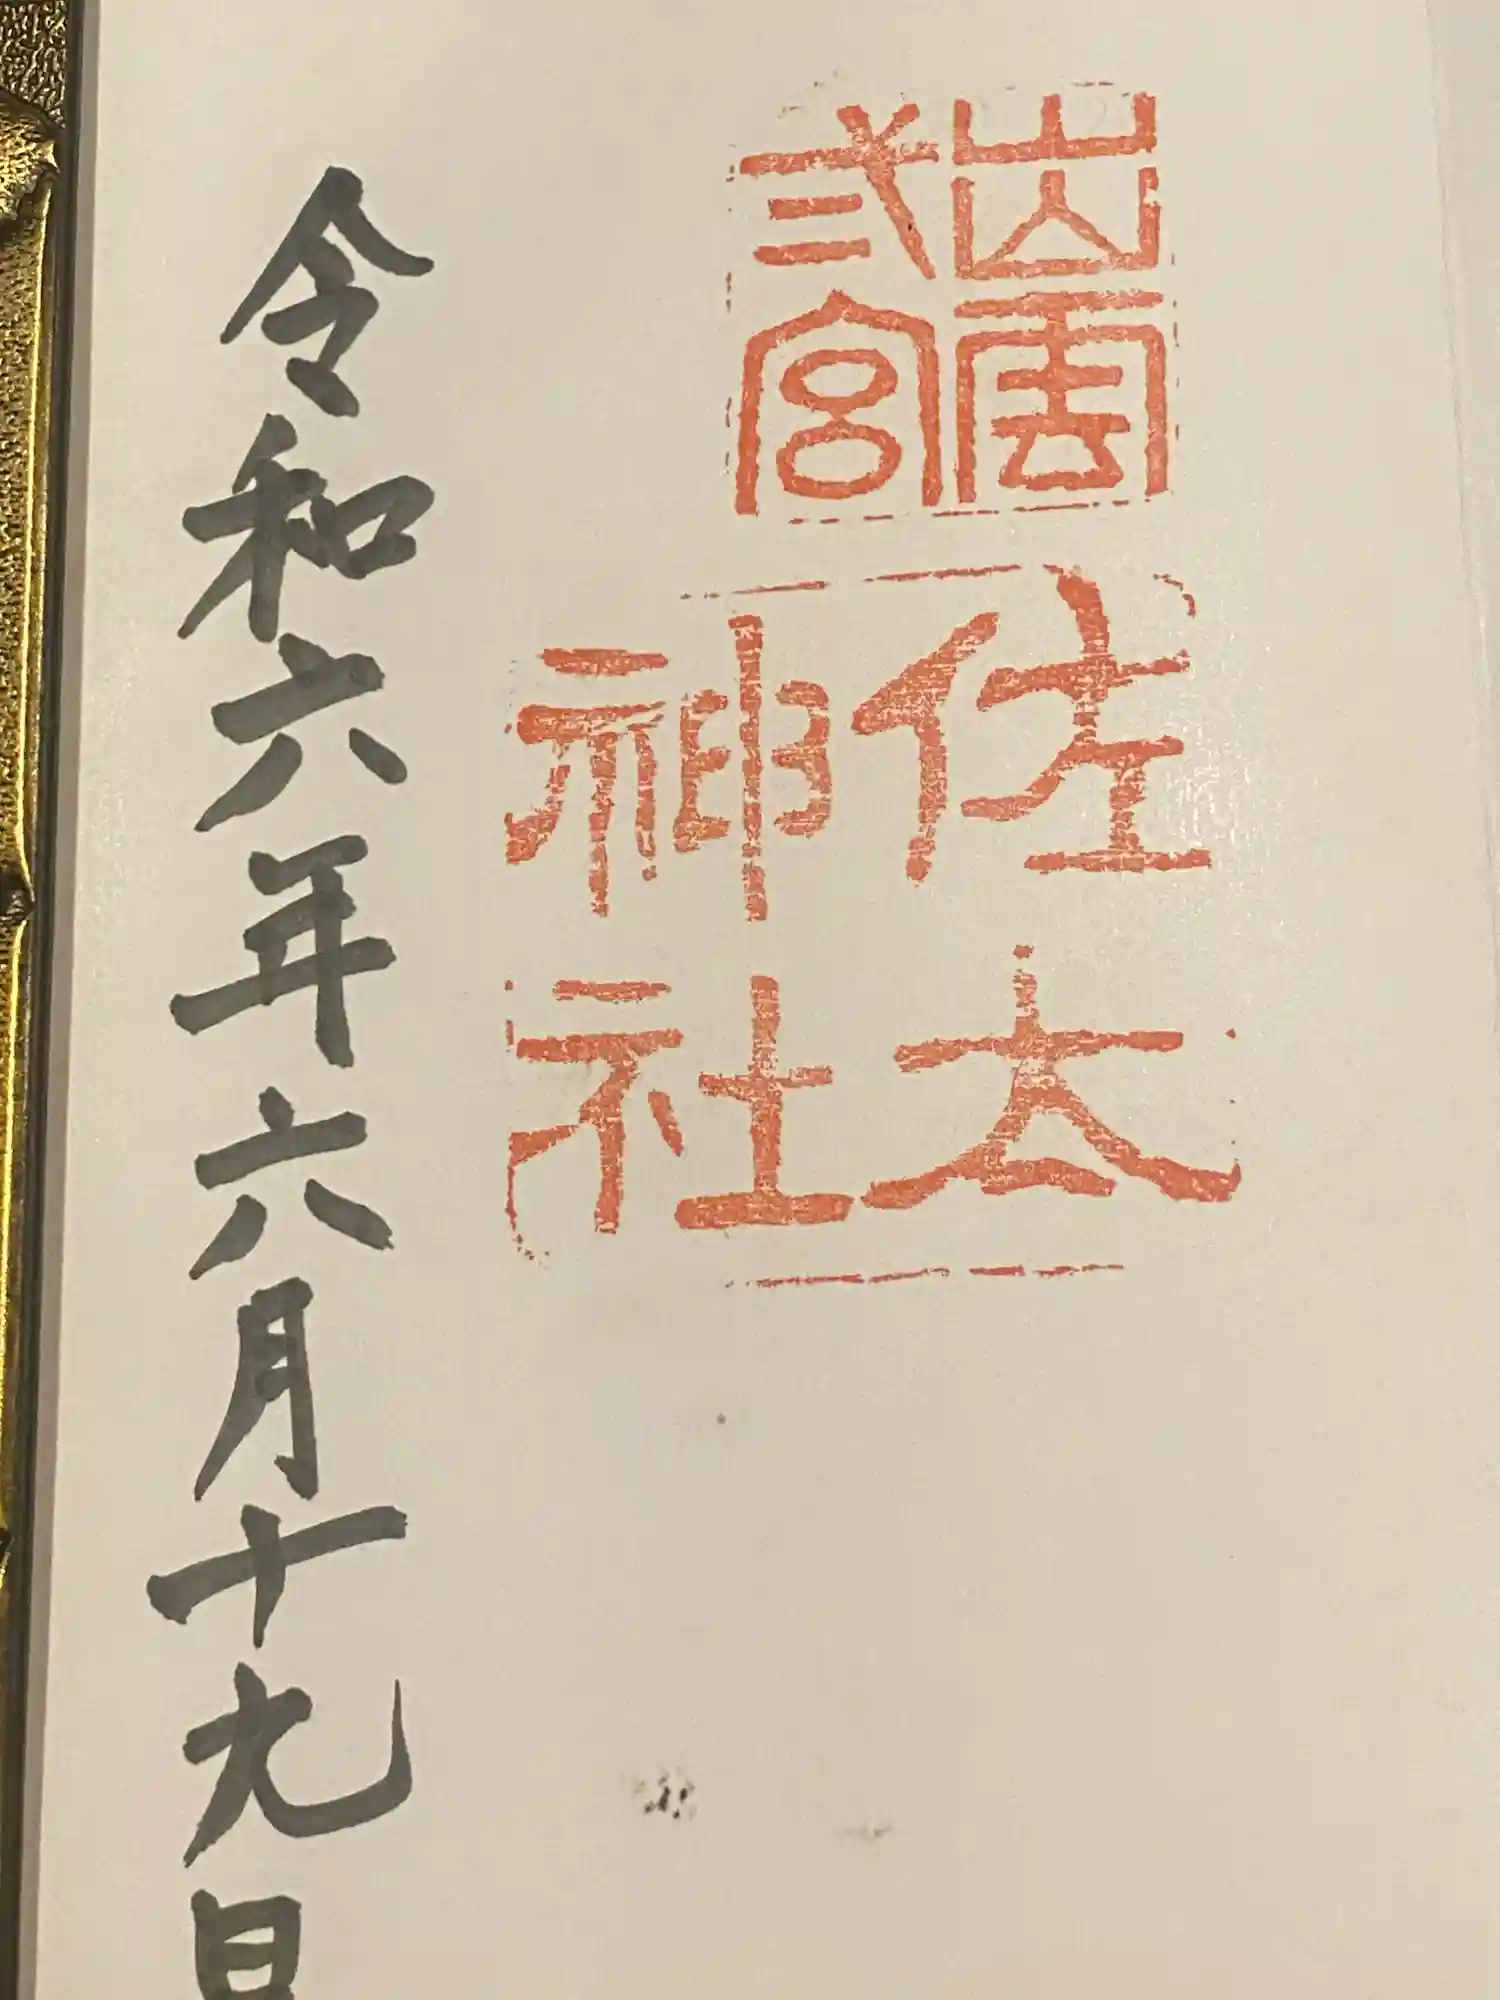 出雲
弐宮
佐太
神社
令和六年六月十九日